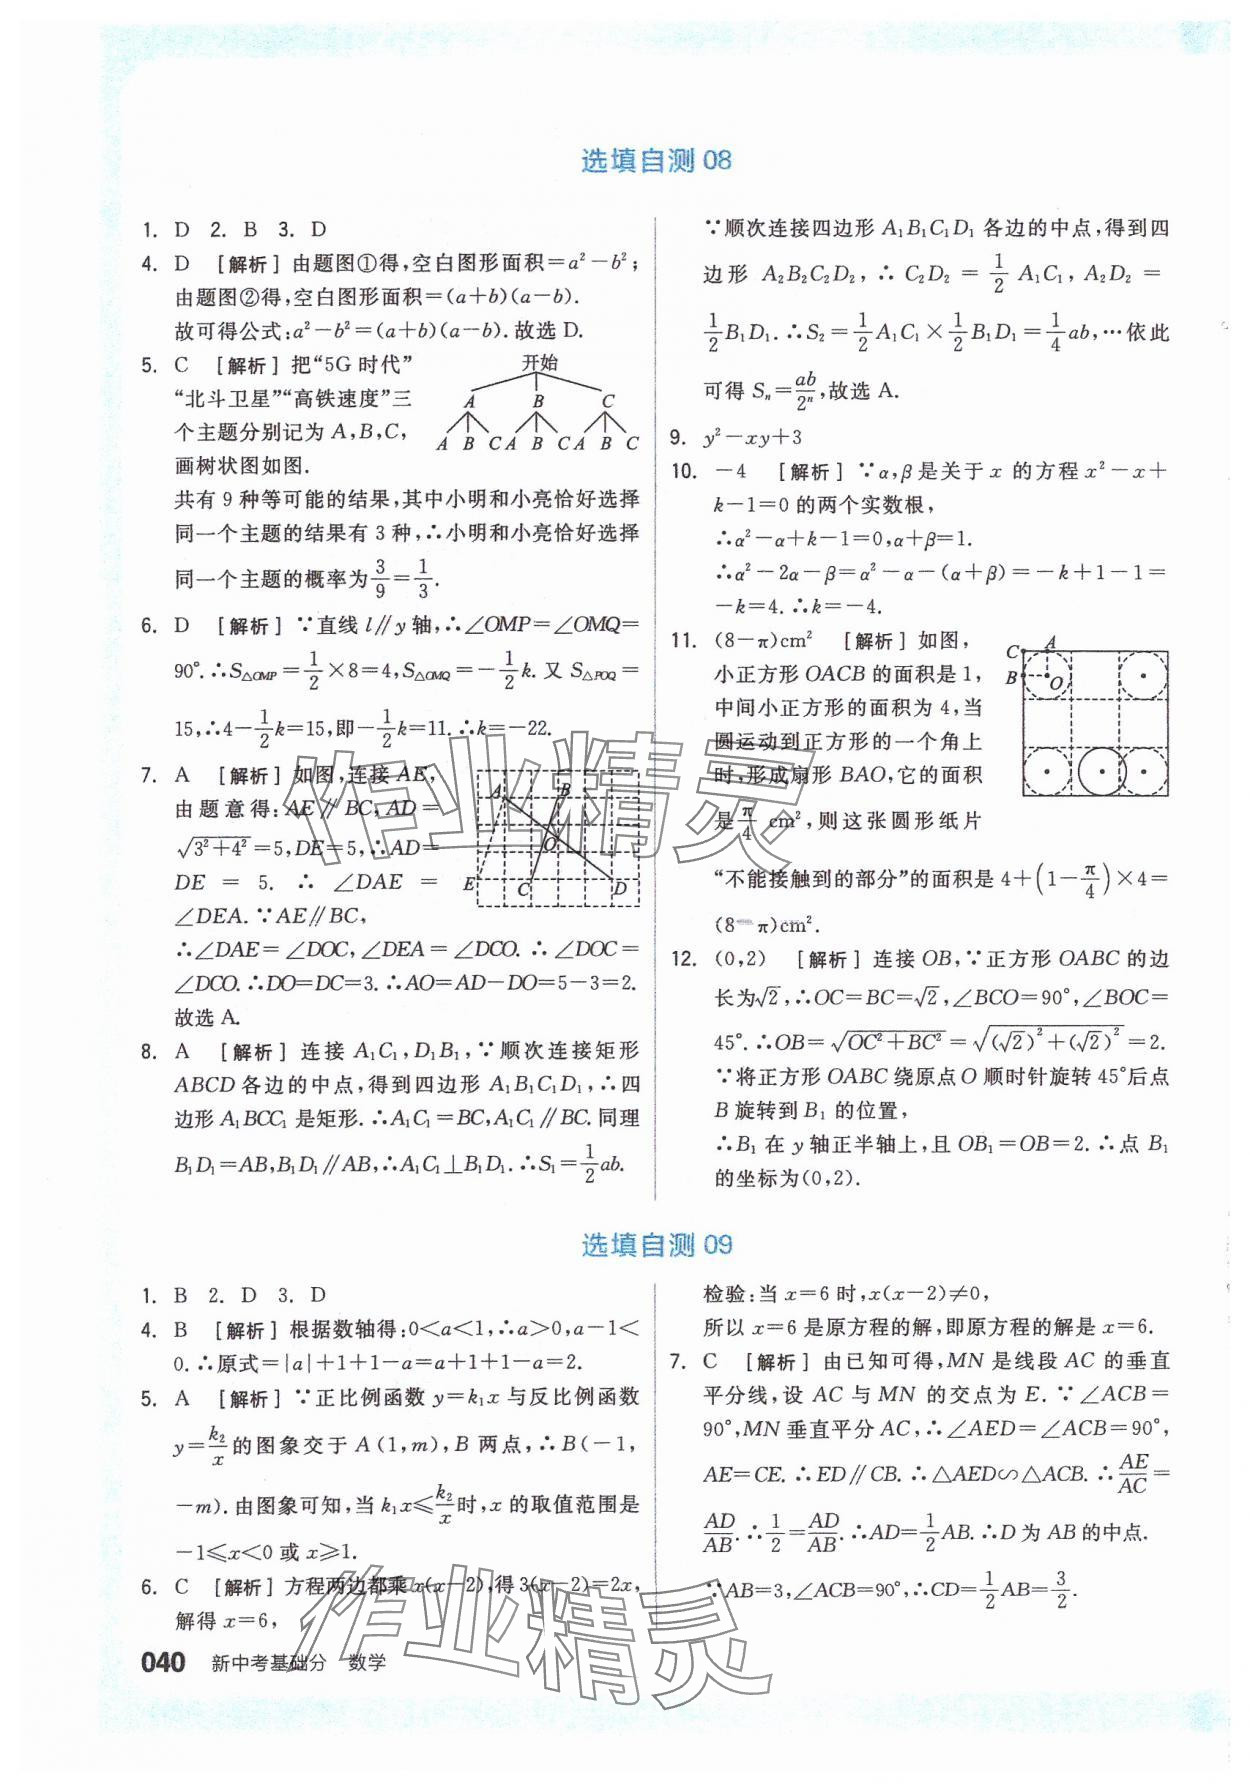 选填自测 08
1. D 2. B 3. D
4. D [解析] 由题图①得,空白图形面积=a²-b²;
由题图②得,空白图形面积=(a+b)(a-b).
故可得公式:a²-b²=(a+b)(a-b).故选 D.
5. C [解析] 把“5G 时代”
“北斗卫星”“高铁速度”三
个主题分别记为 A,B,C,
画树状图如图.
开始
A B C
A B C A B C A B C
共有 9 种等可能的结果,其中小明和小亮恰好选择
同一个主题的结果有 3 种,∴小明和小亮恰好选择
同一个主题的概率为3/9=1/3.
6. D [解析] ∵直线 l∥y 轴,∴∠OMP=∠OMQ=
90°.∴S△OMP=1/2×8=4,S△OMQ=-1/2k.又 S△POQ=
15,∴4-1/2k=15,即-1/2k=11.∴k=-22.
7. A [解析] 如图,连接 AE,
由题意得:AE∥BC,AD=
√(3²+4²)=5,DE=5,∴AD=
DE = 5. ∴ ∠DAE =
∠DEA.∵AE∥BC,
A B O E C D
∴∠DAE=∠DOC,∠DEA=∠DCO. ∴∠DOC=
∠DCO.∴DO=DC=3.∴AO=AD-DO=5-3=2.
故选 A.
8. A [解析] 连接 A₁C₁,D₁B₁,∵顺次连接矩形
ABCD 各边的中点,得到四边形 A₁B₁C₁D₁,∴四
边形 A₁BCC₁ 是矩形.∴A₁C₁=BC,A₁C₁∥BC.同理
B₁D₁=AB,B₁D₁∥AB,∴A₁C₁⊥B₁D₁.∴S₁=1/2ab.
∵顺次连接四边形 A₁B₁C₁D₁ 各边的中点,得到四
边形 A₂B₂C₂D₂,∴ C₂D₂ = 1/2 A₁C₁, A₂D₂ =
1/2B₁D₁.∴S₂=1/2A₁C₁×1/2B₁D₁=1/4ab,…依此
可得 Sₙ=ab/2ⁿ,故选 A.
9. y²-xy+3
10. -4 [解析] ∵α,β是关于 x 的方程 x²-x+
k-1=0 的两个实数根,
∴α²-α+k-1=0,α+β=1.
∴α²-2α-β=α²-α-(α+β)=-k+1-1=
-k=4.∴k=-4.
11. (8-π)cm² [解析] 如图,
小正方形 OACB 的面积是 1,
中间小正方形的面积为 4,当
圆运动到正方形的一个角上
时,形成扇形 BAO,它的面积
是π/4 cm²,则这张圆形纸片
C A B O
“不能接触到的部分”的面积是 4+(1-π/4)×4=
(8-π)cm².
12. (0,2) [解析] 连接 OB,∵正方形 OABC 的边
长为√2,∴OC=BC=√2,∠BCO=90°,∠BOC=
45°.∴OB=√(OC²+BC²)=√((√2)²+(√2)²)=2.
∵将正方形 OABC 绕原点 O 顺时针旋转 45°后点
B 旋转到 B₁ 的位置,
∴B₁ 在 y 轴正半轴上,且 OB₁=OB=2.∴点 B₁
的坐标为(0,2).
选填自测 09
1. B 2. D 3. D
4. B [解析] 根据数轴得:0<a<1,∴a>0,a-1<
0.∴原式=|a|+1+1-a=a+1+1-a=2.
5. A [解析] ∵正比例函数 y=k₁x 与反比例函数
y=k₂/x的图象交于 A(1,m),B 两点,∴B(-1,
-m).由图象可知,当 k₁x≤k₂/x时,x 的取值范围是
-1≤x<0 或 x≥1.
6. C [解析] 方程两边都乘 x(x-2),得 3(x-2)=2x,
解得 x=6,
检验:当 x=6 时,x(x-2)≠0,
所以 x=6 是原方程的解,即原方程的解是 x=6.
7. C [解析] 由已知可得,MN 是线段 AC 的垂直
平分线,设 AC 与 MN 的交点为 E.∵∠ACB=
90°,MN 垂直平分 AC,∴∠AED=∠ACB=90°,
AE=CE.∴ED∥CB.∴△AED∽△ACB.∴AE/AC=
AD/AB.∴1/2=AD/AB.∴AD=1/2AB.∴D 为 AB 的中点.
∵AB=3,∠ACB=90°,∴CD=1/2AB=3/2.
040 新中考基础分 数学
作业精灵
作业精灵